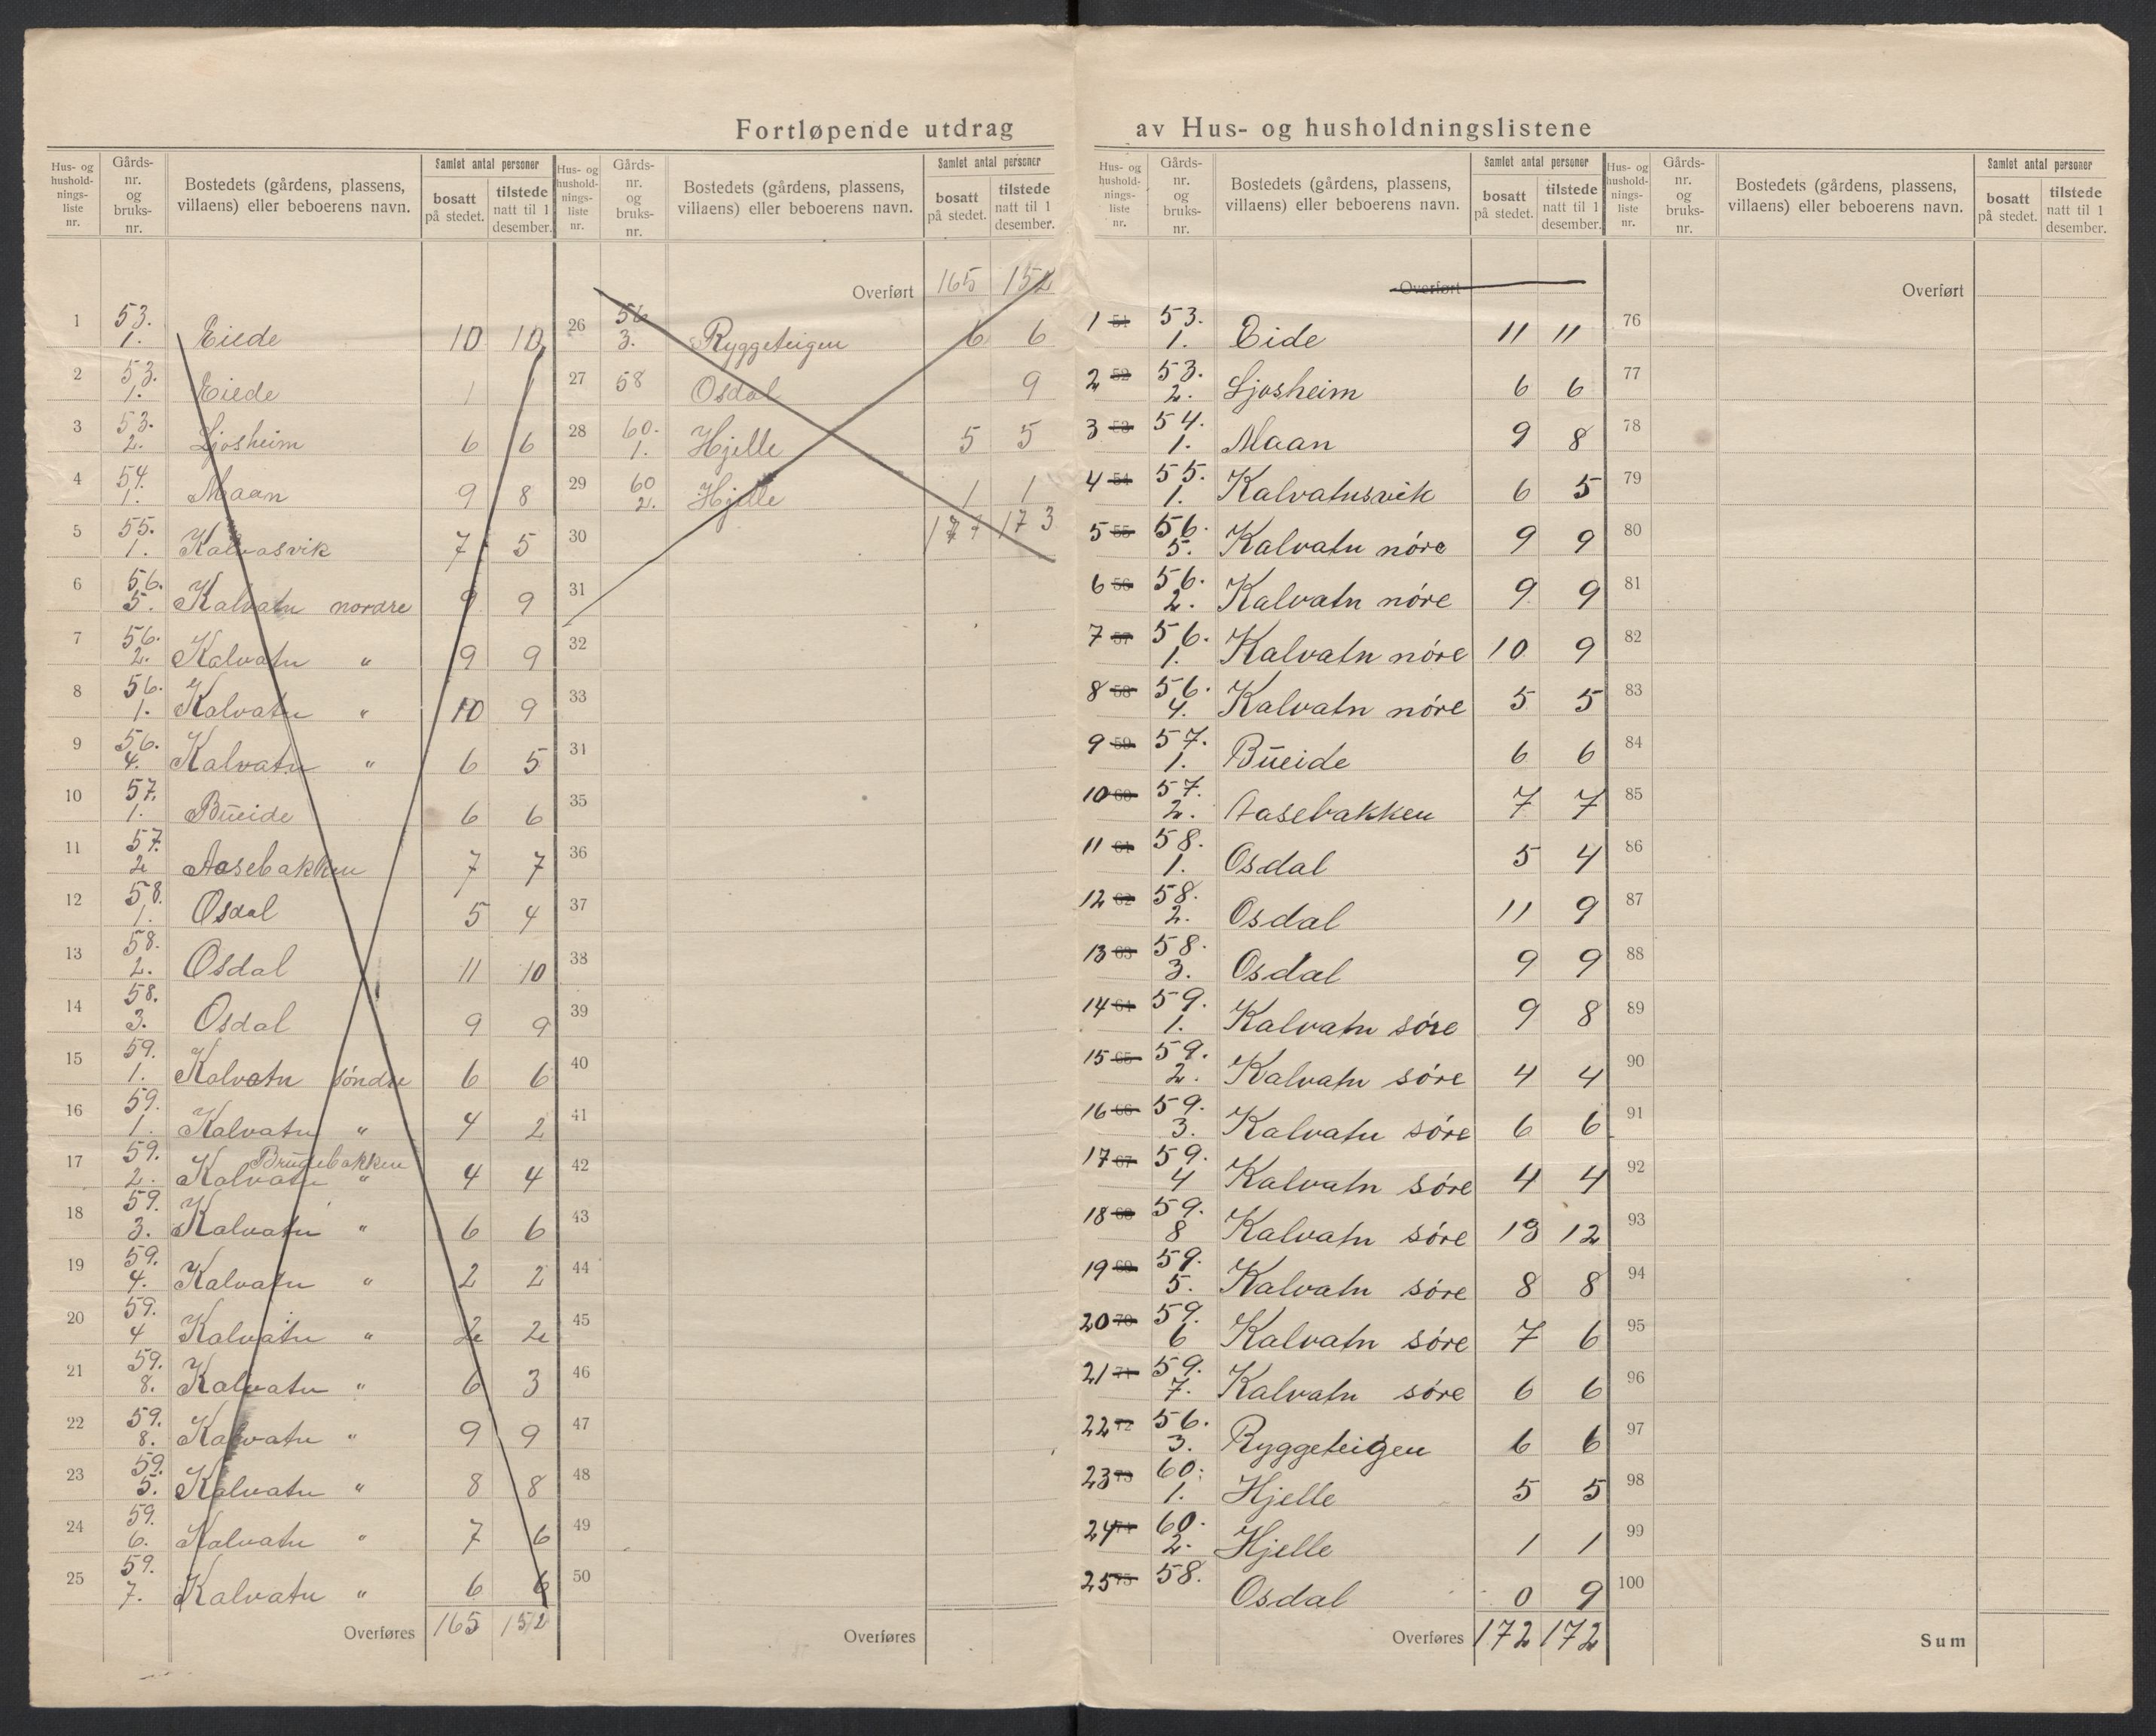 Fortløpende utdrag av Hus- og husholdningslistene
Hus- og hushold-nings-liste nr. | Gårds-nr. og bruks-nr. | Bostedets (gårdens, plassens, villaens) eller beboerens navn. | Samlet antal personer | bosatt på stedet. | tilstede natt til 1 desember.
1 53. 1. Eiede 10 10
2 53. 1. Eiede 1 1
3 53. 2. Ljosheim 6 6
4 54. 1. Maan 9 8
5 55. 1. Kalvasvik 7 5
6 56. 5. Kalvatn nordre 9 9
7 56. 2. Kalvatn " 9 9
8 56. 1. Kalvatn " 10 9
9 56. 4. Kalvatn " 6 5
10 57. 1. Bueide 6 6
11 57. 2 Aasebakken 7 7
12 58. 1. Osdal 5 4
13 58. 2. Osdal 11 10
14 58. 3. Osdal 9 9
15 59. 1. Kalvatn søndre 6 6
16 59. 1. Kalvatn " 4 2
17 59. 2. Kalvatn " Brugebakken 4 4
18 59. 3. Kalvatn " 6 6
19 59. 4. Kalvatn " 2 2
20 59. 4 Kalvatn " 2 2
21 59. 8. Kalvatn " 6 3
22 59. 8. Kalvatn " 9 9
23 59. 5. Kalvatn " 8 8
24 59. 6. Kalvatn " 7 6
25 59. 7. Kalvatn " 6 6
Overføres 165 152
Hus- og hushold-nings-liste nr. | Gårds-nr. og bruks-nr. | Bostedets (gårdens, plassens, villaens) eller beboerens navn. | Samlet antal personer | bosatt på stedet. | tilstede natt til 1 desember.
Overført 165 152
26 56 3. Ryggeteigen 6 6
27 58 Osdal 9
28 60. 1. Hjelle 5 5
29 60 2. Hjelle 1 1
30 173
31
32
33
31
35
36
37
38
39
40
41
42
43
44
45
46
47
48
49
50
Overføres
Hus- og hushold-nings-liste nr. | Gårds-nr. og bruks-nr. | Bostedets (gårdens, plassens, villaens) eller beboerens navn. | Samlet antal personer | bosatt på stedet. | tilstede natt til 1 desember.
Overført
1 51 53. 1. Eide 11 11
2 52 53. 2. Ljosheim 6 6
3 53 54. 1. Maan 9 8
4 54 55. 1. Kalvatnsvik 6 5
5 55 56. 5. Kalvatn nóre 9 9
6 56 56. 2. Kalvatn nóre 9 9
7 57 56. 1. Kalvatn nóre 10 9
8 58 56. 4. Kalvatn nóre 5 5
9 59 57. 1. Bueide 6 6
10 60 57. 2. Aasebakken 7 7
11 61 58. 1. Osdal 5 4
12 62 58. 2. Osdal 11 9
13 63 58. 3. Osdal 9 9
14 64 59. 1. Kalvatn sóre 9 8
15 65 59. 2. Kalvatn sóre 4 4
16 66 59. 3. Kalvatn sóre 6 6
17 67 59. 4 Kalvatn sóre 4 4
18 68 59. 8 Kalvatn sóre 13 12
19 69 59. 5. Kalvatn sóre 8 8
20 70 59. 6 Kalvatn sóre 7 6
21 71 59. 7. Kalvatn sóre 6 6
22 72 56. 3. Ryggeteigen 6 6
23 73 60. 1. Hjelle 5 5
24 74 60. 2. Hjelle 1 1
25 75 58. Osdal 0 9
Overføres 172 172
Hus- og hushold-nings-liste nr. | Gårds-nr. og bruks-nr. | Bostedets (gårdens, plassens, villaens) eller beboerens navn. | Samlet antal personer | bosatt på stedet. | tilstede natt til 1 desember.
Overført
76
77
78
79
80
81
82
83
84
85
86
87
88
89
90
91
92
93
94
95
96
97
98
99
100
Sum